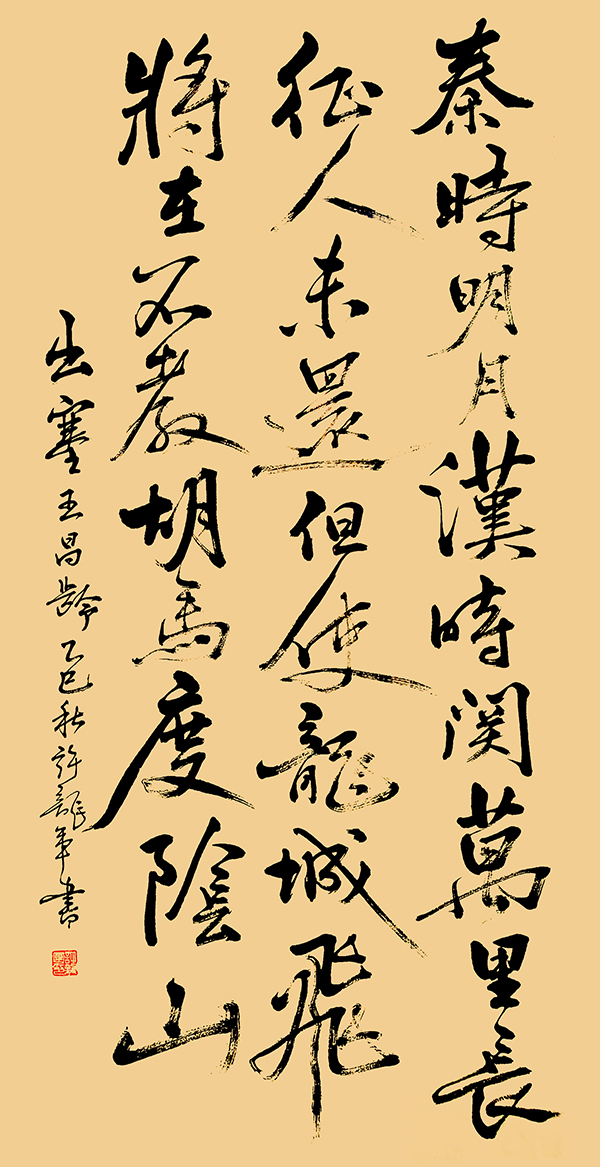 秦時明月漢時関萬里長
征人未還但使龍城飛
將在不教胡馬度陰山
出塞王昌齡乙巳秋許龍年書